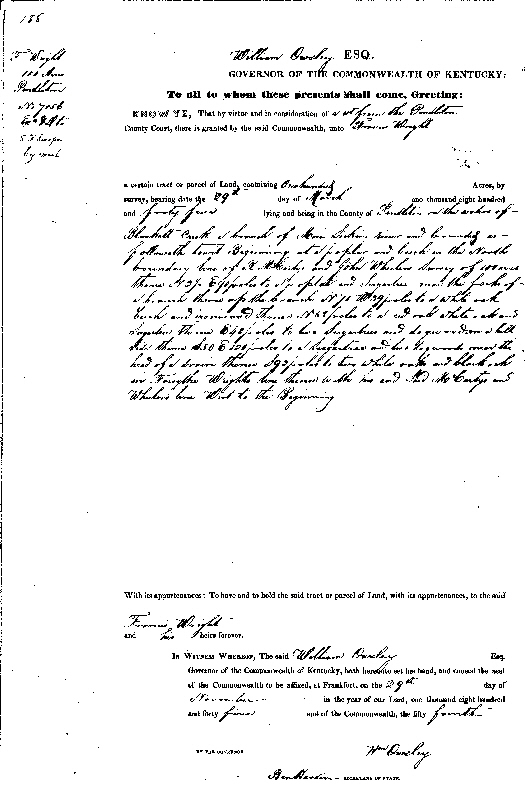 188
Wright
100 Acres
Pendleton
No 7056
by mail
William Owsley ESQ.
GOVERNOR OF THE COMMONWEALTH OF KENTUCKY:
To all to whom these presents shall come, Greeting:
KNOW YE, That by virtue and in consideration of a cert from the Pendleton
County Court, there is granted by the said Commonwealth, unto Francis Wright
a certain tract or parcel of Land, containing One hundred Acres, by
survey, bearing date the 29th day of March one thousand eight hundred
and forty five lying and being in the County of Pendleton on the waters of
Creek a branch of Main Licking river and bounded as
followeth towit Beginning at a poplar and beech in the North
boundary line of McCartys and John Whelers Survey of 100 acres
thence N poles to a poplar and Sugartree near the fork of
a branch thence up the branch N 71 W 39 poles to a white oak
Beech and ironwood Thence N poles to a red oak white oak and
Sugartree Thence E 40 poles to two Sugartrees and dogwood on a hill
side thence S 50 E 120 poles to a Sugartree and two dogwoods near the
head of a drain thence S 92 poles to two white oaks and black oak
in Forsythe Wrights line thence with his and said McCartys and
Whelers line West to the Beginning
With its appurtenances: To have and to hold the said tract or parcel of Land, with its appurtenances, to the said
Francis Wright
and his heirs forever.
IN WITNESS WHEREOF, The said William Owsley Esq.
Governor of the Commonwealth of Kentucky, hath hereunto set his hand, and caused the seal
of the Commonwealth to be affixed, at Frankfort, on the 29th day of
November in the year of our Lord, one thousand eight hundred
and forty five and of the Commonwealth, the fifty fourth
BY THE GOVERNOR Wm Owsley
Ben Hardin SECRETARY OF STATE.